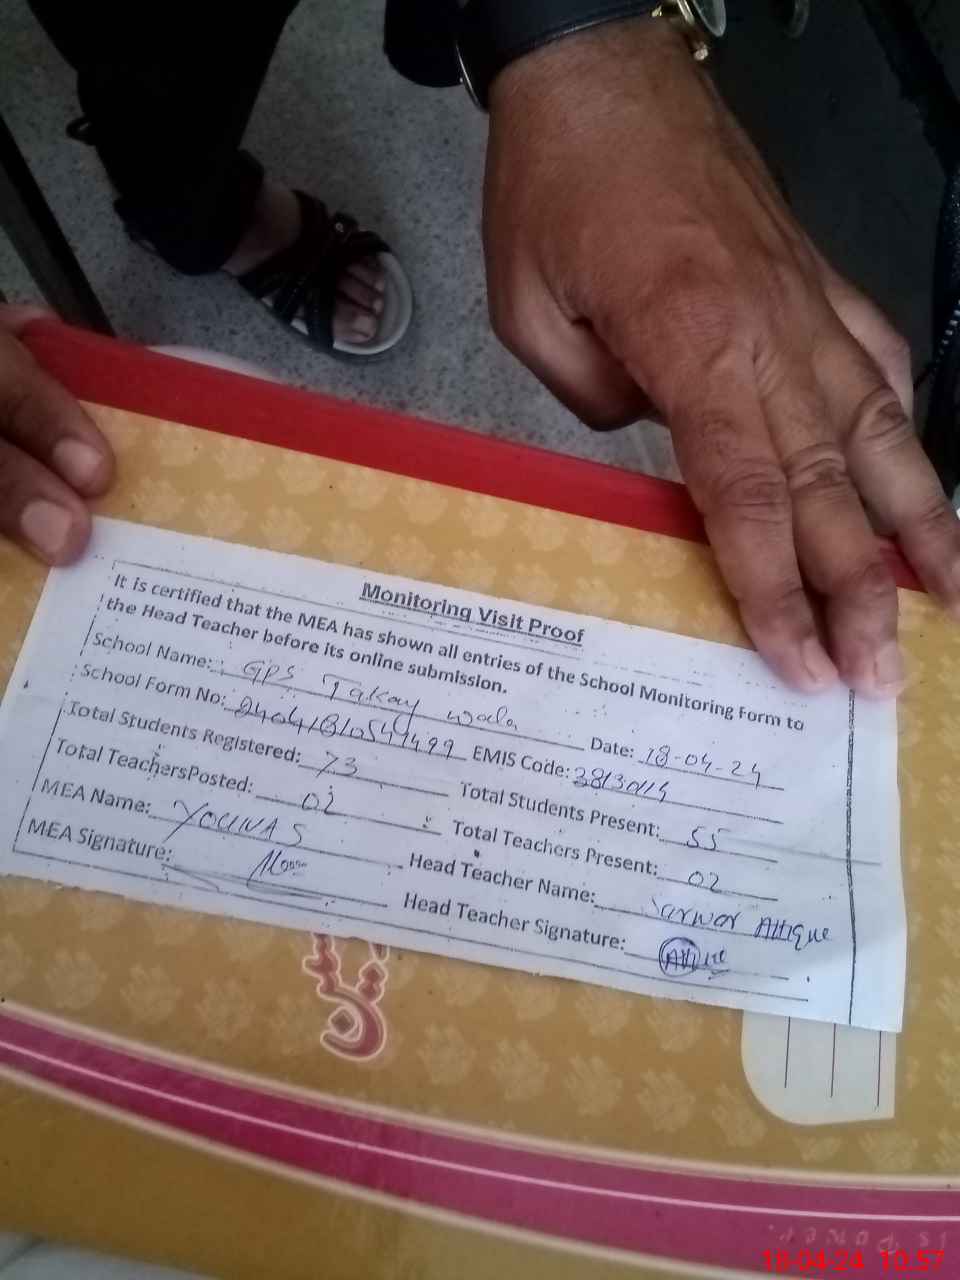 Monitoring Visit Proof
It is certified that the MEA has shown all entries of the School Monitoring Form to
the Head Teacher before its online submission.
School Name: GPS Takay wala Date: 18-04-24
School Form No: EMIS Code:
Total Students Registered: 73 Total Students Present: 55
Total TeachersPosted: 02 Total Teachers Present: 02
MEA Name: YOUNAS Head Teacher Name: Sarwar Attique
MEA Signature: Head Teacher Signature:
18-04-24 10:57